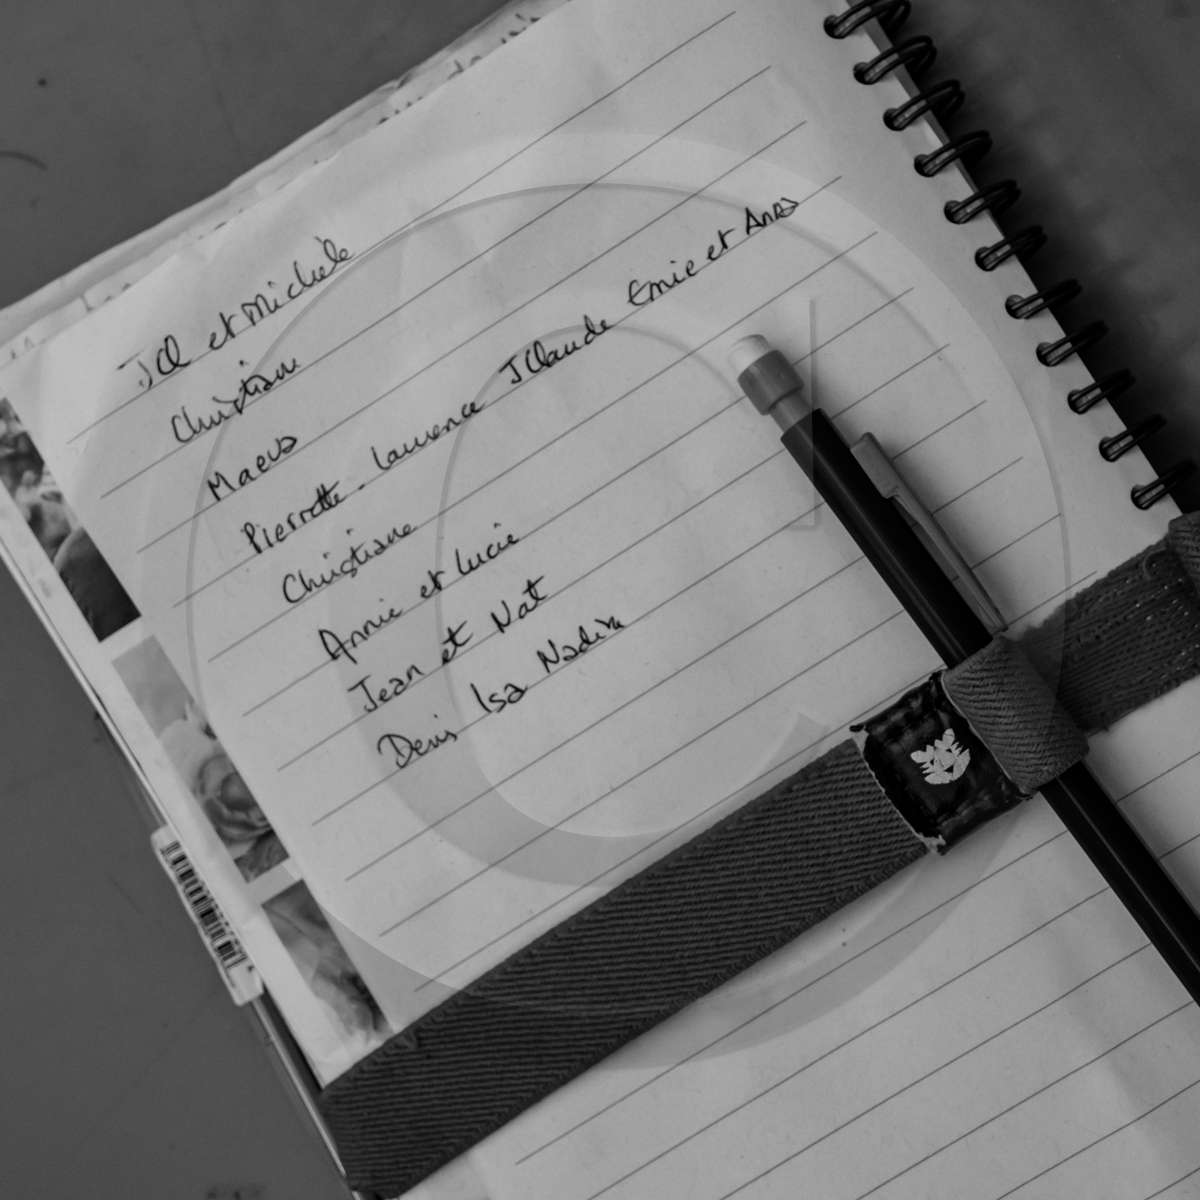 JCl et Michèle
Christiane
Maeva
Pierrette. Laurence JClaude Emie et Anas
Christiane
Annie et Lucie
Jean et Nat
Denis Isa Nadine